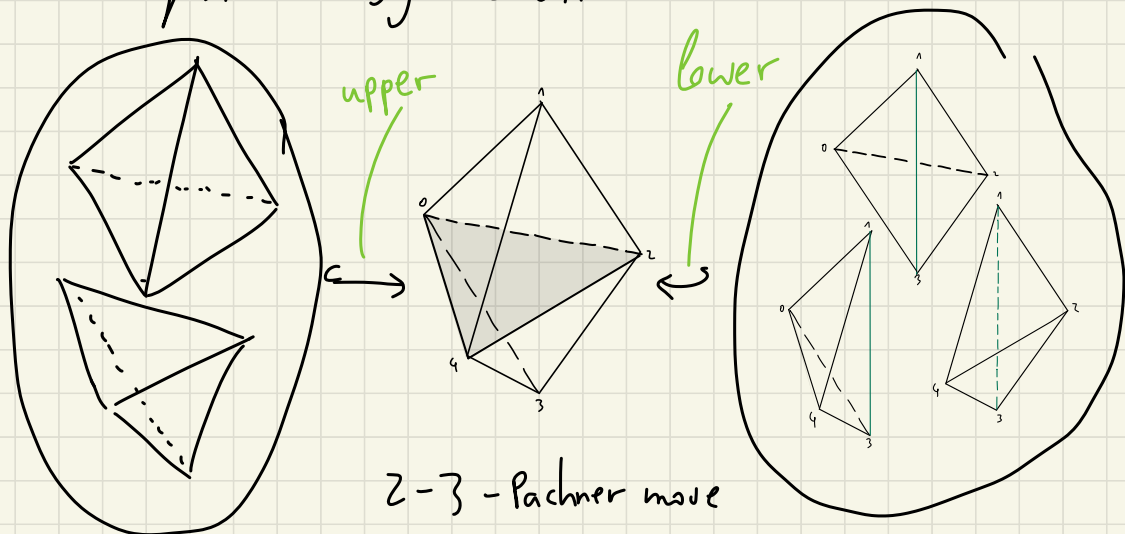 upper
lower
1
0
2
4
3
1
0
2
3
1
0
4
3
1
2
4
3
2-3-Pachner move